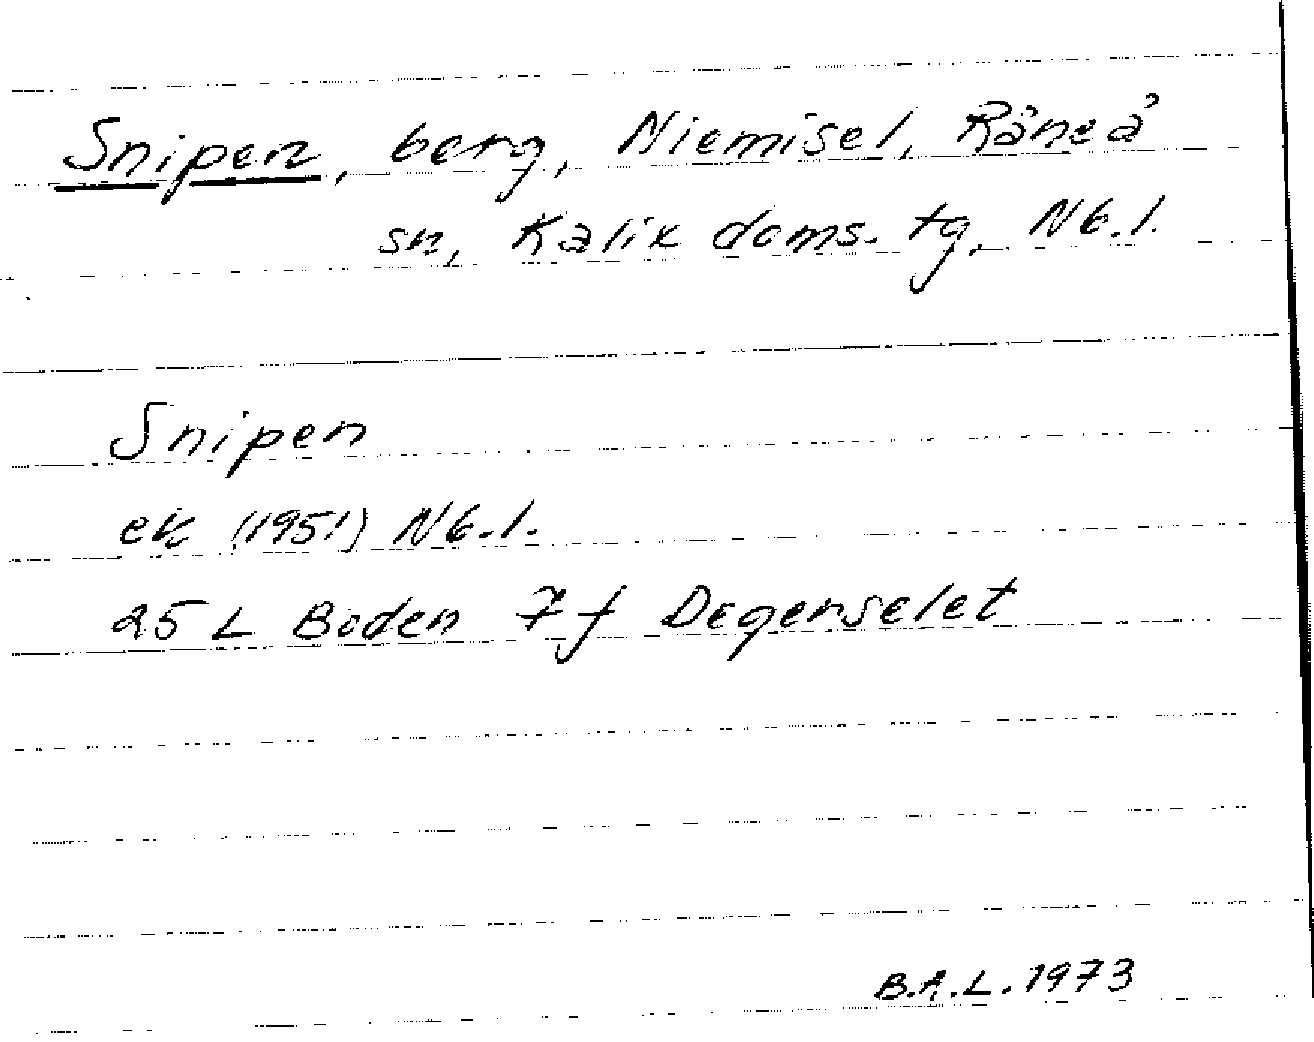 Snipen, berg, Niemisel, Råneå
sn, Kalix doms. tg, Nb.l.
Snipen
ek (1951) Nb.l.
25 L Boden 7 f Degerselet
B.A.L. 1973